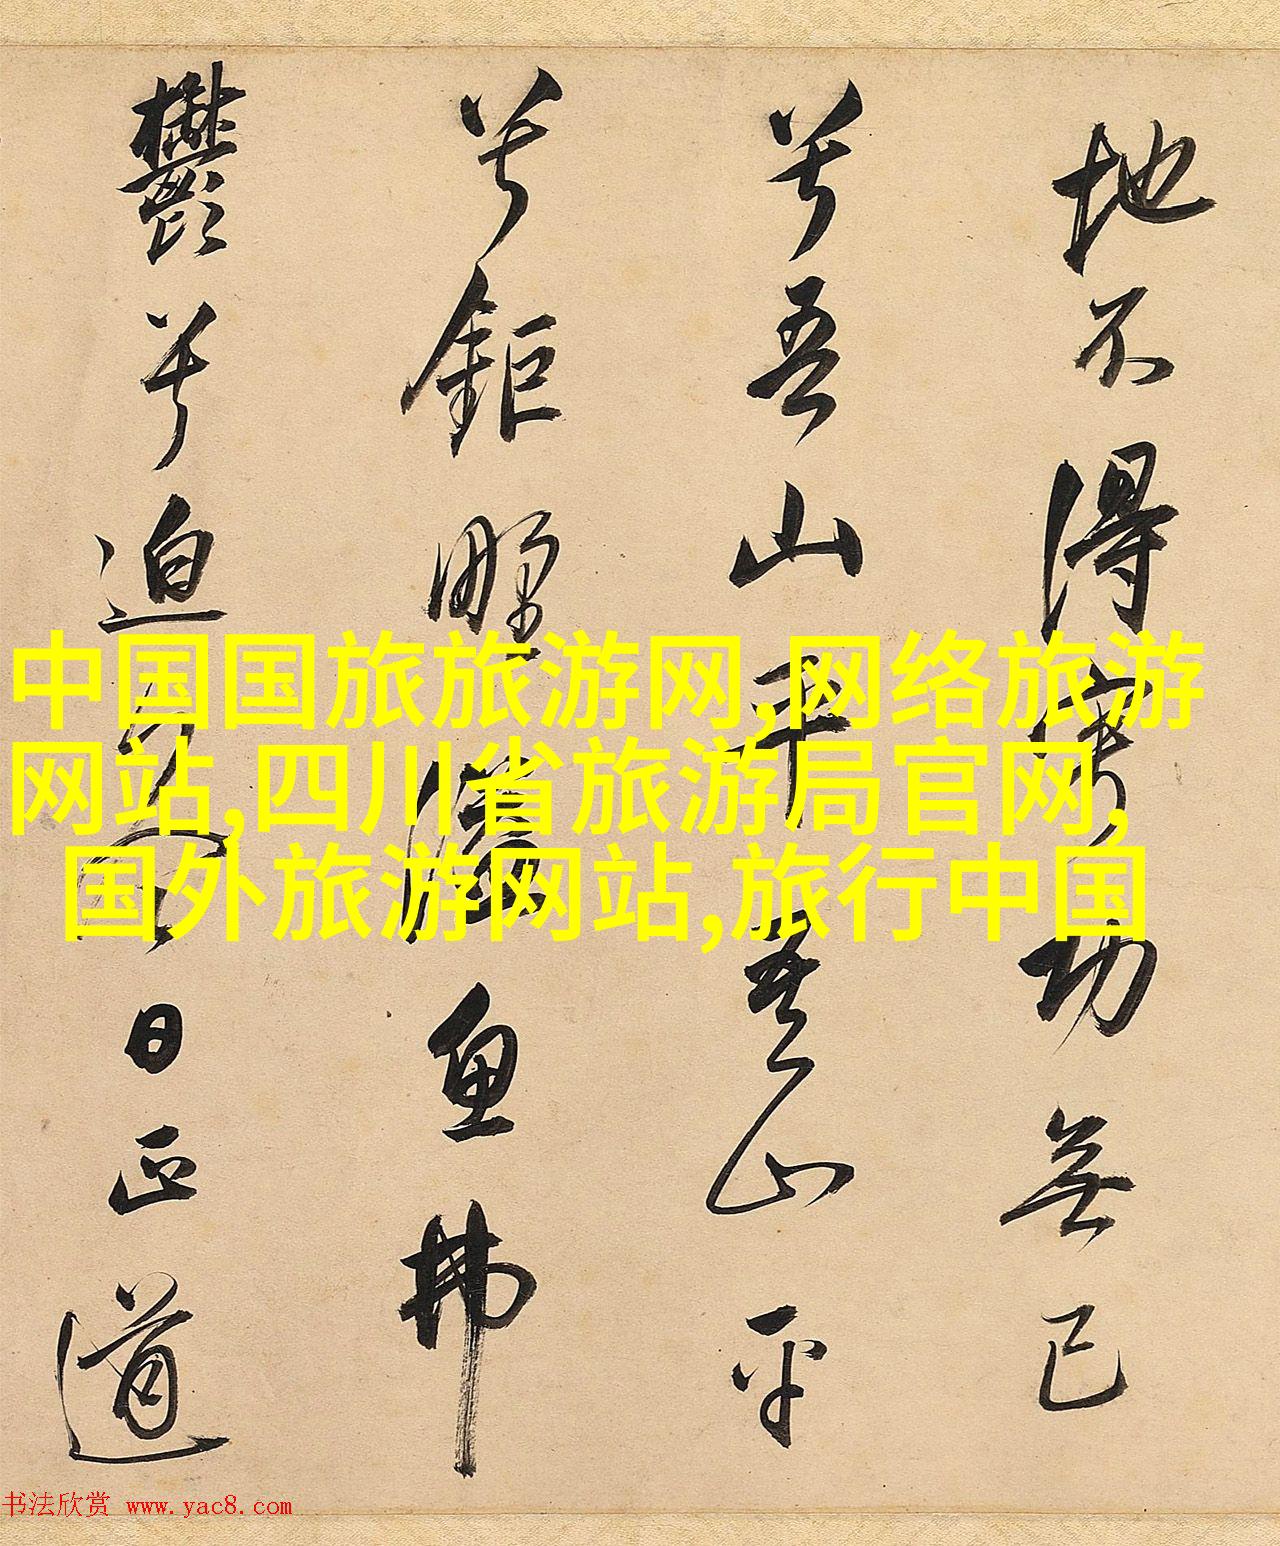 地不得寧功無已
兮吾山平吾山平
兮鉅野溢魚拂
鬱兮迫日正道
中国国旅旅游网,网络旅游
网站,四川省旅游局官网,
国外旅游网站,旅行中国
书法欣赏 www.yac8.com